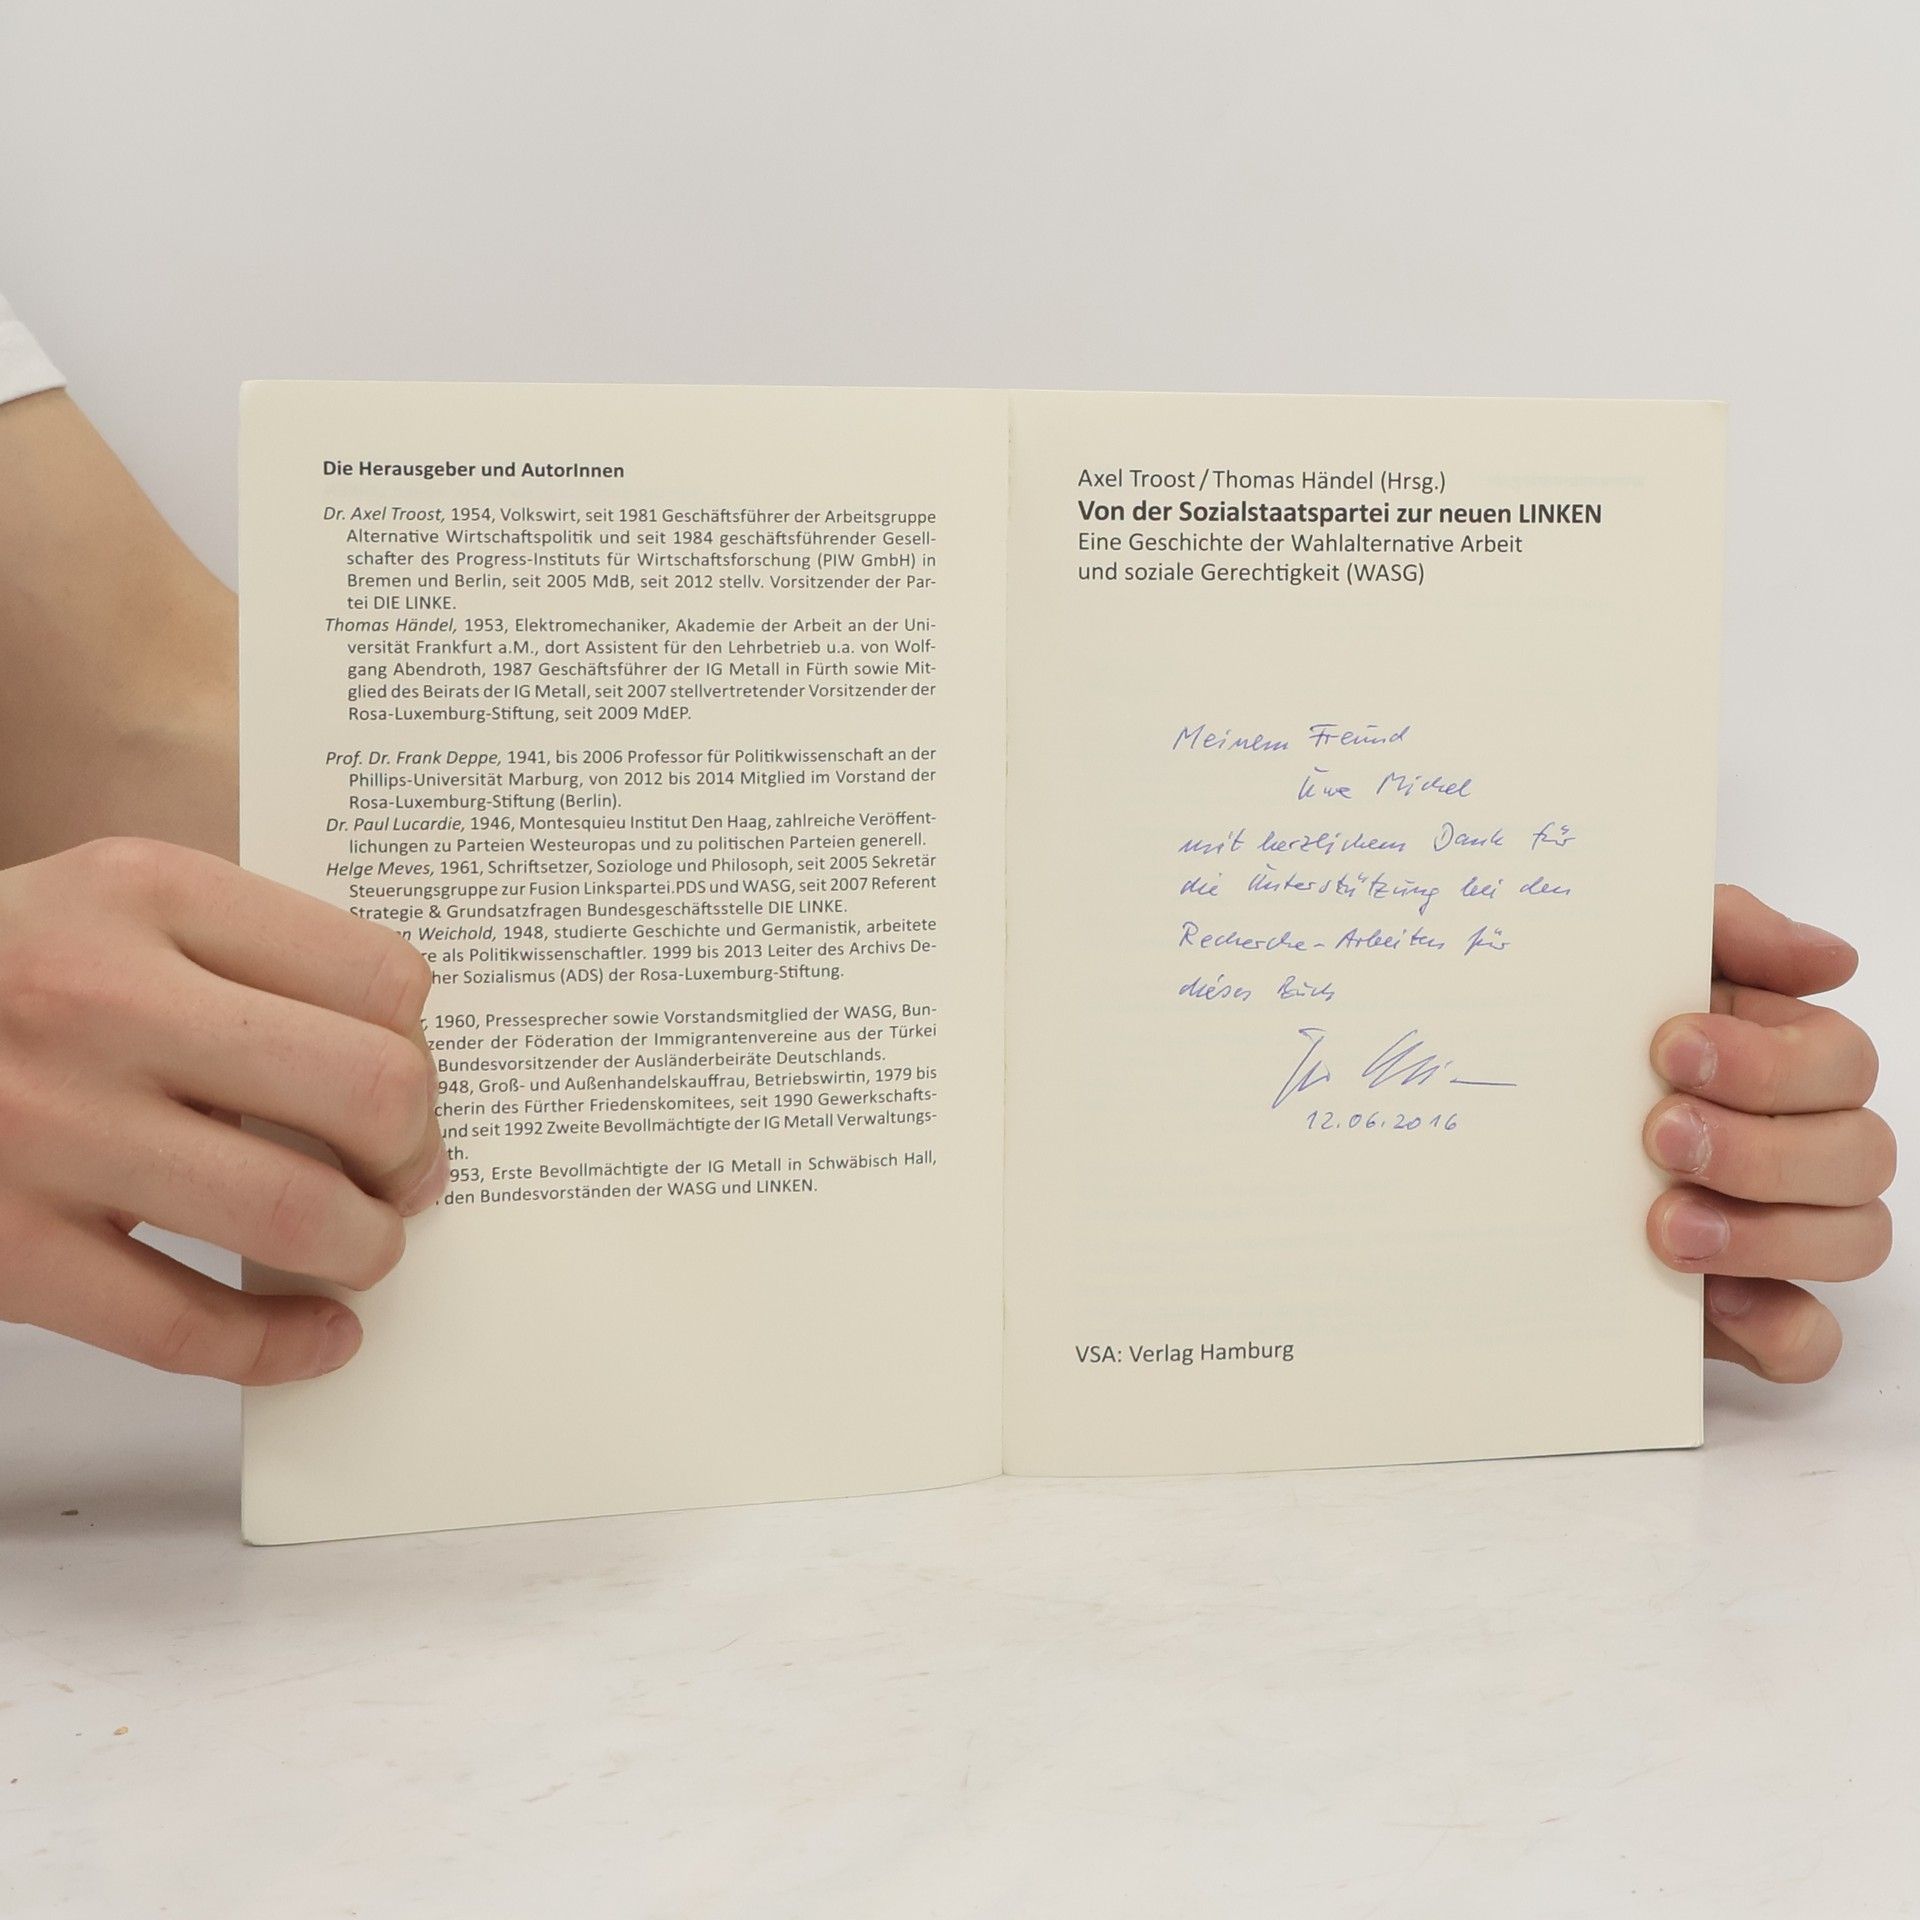 Die Herausgeber und AutorInnen
Dr. Axel Troost, 1954, Volkswirt, seit 1981 Geschäftsführer der Arbeitsgruppe
Alternative Wirtschaftspolitik und seit 1984 geschäftsführender Gesell-
schafter des Progress-Instituts für Wirtschaftsforschung (PIW GmbH) in
Bremen und Berlin, seit 2005 MdB, seit 2012 stellv. Vorsitzender der Par-
tei DIE LINKE.
Thomas Händel, 1953, Elektromechaniker, Akademie der Arbeit an der Uni-
versität Frankfurt a.M., dort Assistent für den Lehrbetrieb u.a. von Wolf-
gang Abendroth, 1987 Geschäftsführer der IG Metall in Fürth sowie Mit-
glied des Beirats der IG Metall, seit 2007 stellvertretender Vorsitzender der
Rosa-Luxemburg-Stiftung, seit 2009 MdEP.
Prof. Dr. Frank Deppe, 1941, bis 2006 Professor für Politikwissenschaft an der
Phillips-Universität Marburg, von 2012 bis 2014 Mitglied im Vorstand der
Rosa-Luxemburg-Stiftung (Berlin).
Dr. Paul Lucardie, 1946, Montesquieu Institut Den Haag, zahlreiche Veröffent-
lichungen zu Parteien Westeuropas und zu politischen Parteien generell.
Helge Meves, 1961, Schriftsetzer, Soziologe und Philosoph, seit 2005 Sekretär
Steuerungsgruppe zur Fusion Linkspartei.PDS und WASG, seit 2007 Referent
Strategie & Grundsatzfragen Bundesgeschäftsstelle DIE LINKE.
Weichold, 1948, studierte Geschichte und Germanistik, arbeitete
als Politikwissenschaftler. 1999 bis 2013 Leiter des Archivs De-
her Sozialismus (ADS) der Rosa-Luxemburg-Stiftung.
1960, Pressesprecher sowie Vorstandsmitglied der WASG, Bun-
zender der Föderation der Immigrantenvereine aus der Türkei
Bundesvorsitzender der Ausländerbeiräte Deutschlands.
948, Groß- und Außenhandelskauffrau, Betriebswirtin, 1979 bis
cherin des Fürther Friedenskomitees, seit 1990 Gewerkschafts-
und seit 1992 Zweite Bevollmächtigte der IG Metall Verwaltungs-
th.
953, Erste Bevollmächtigte der IG Metall in Schwäbisch Hall,
den Bundesvorständen der WASG und LINKEN.
Axel Troost/Thomas Händel (Hrsg.)
Von der Sozialstaatspartei zur neuen LINKEN
Eine Geschichte der Wahlalternative Arbeit
und soziale Gerechtigkeit (WASG)
Meinem Freund
Uwe Michel
mit herzlichem Dank für
die Unterstützung bei den
Recherche-Arbeiten für
dieses Buch
12.06.2016
VSA: Verlag Hamburg